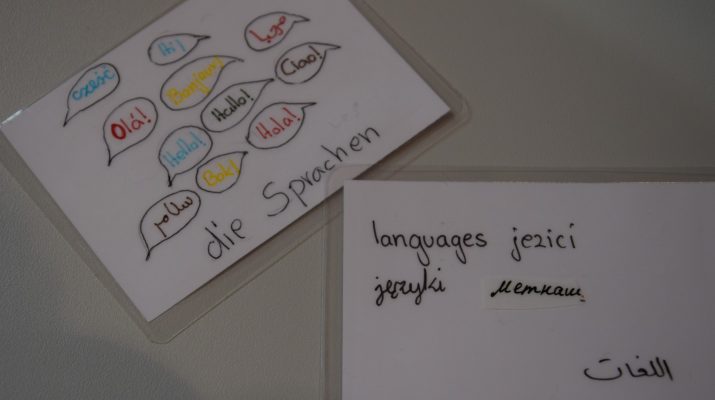 cześć
Hi!
مرحبا
Olá!
Bonjour!
Ciao!
Hallo!
Hello!
Hola!
Bok!
سلام
die Sprachen
languages jezici
języki меттнаш
اللغات